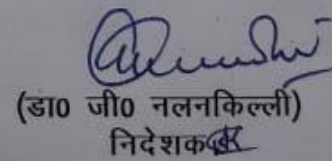 (डा0 जी0 नलनकिल्ली)
निदेशक